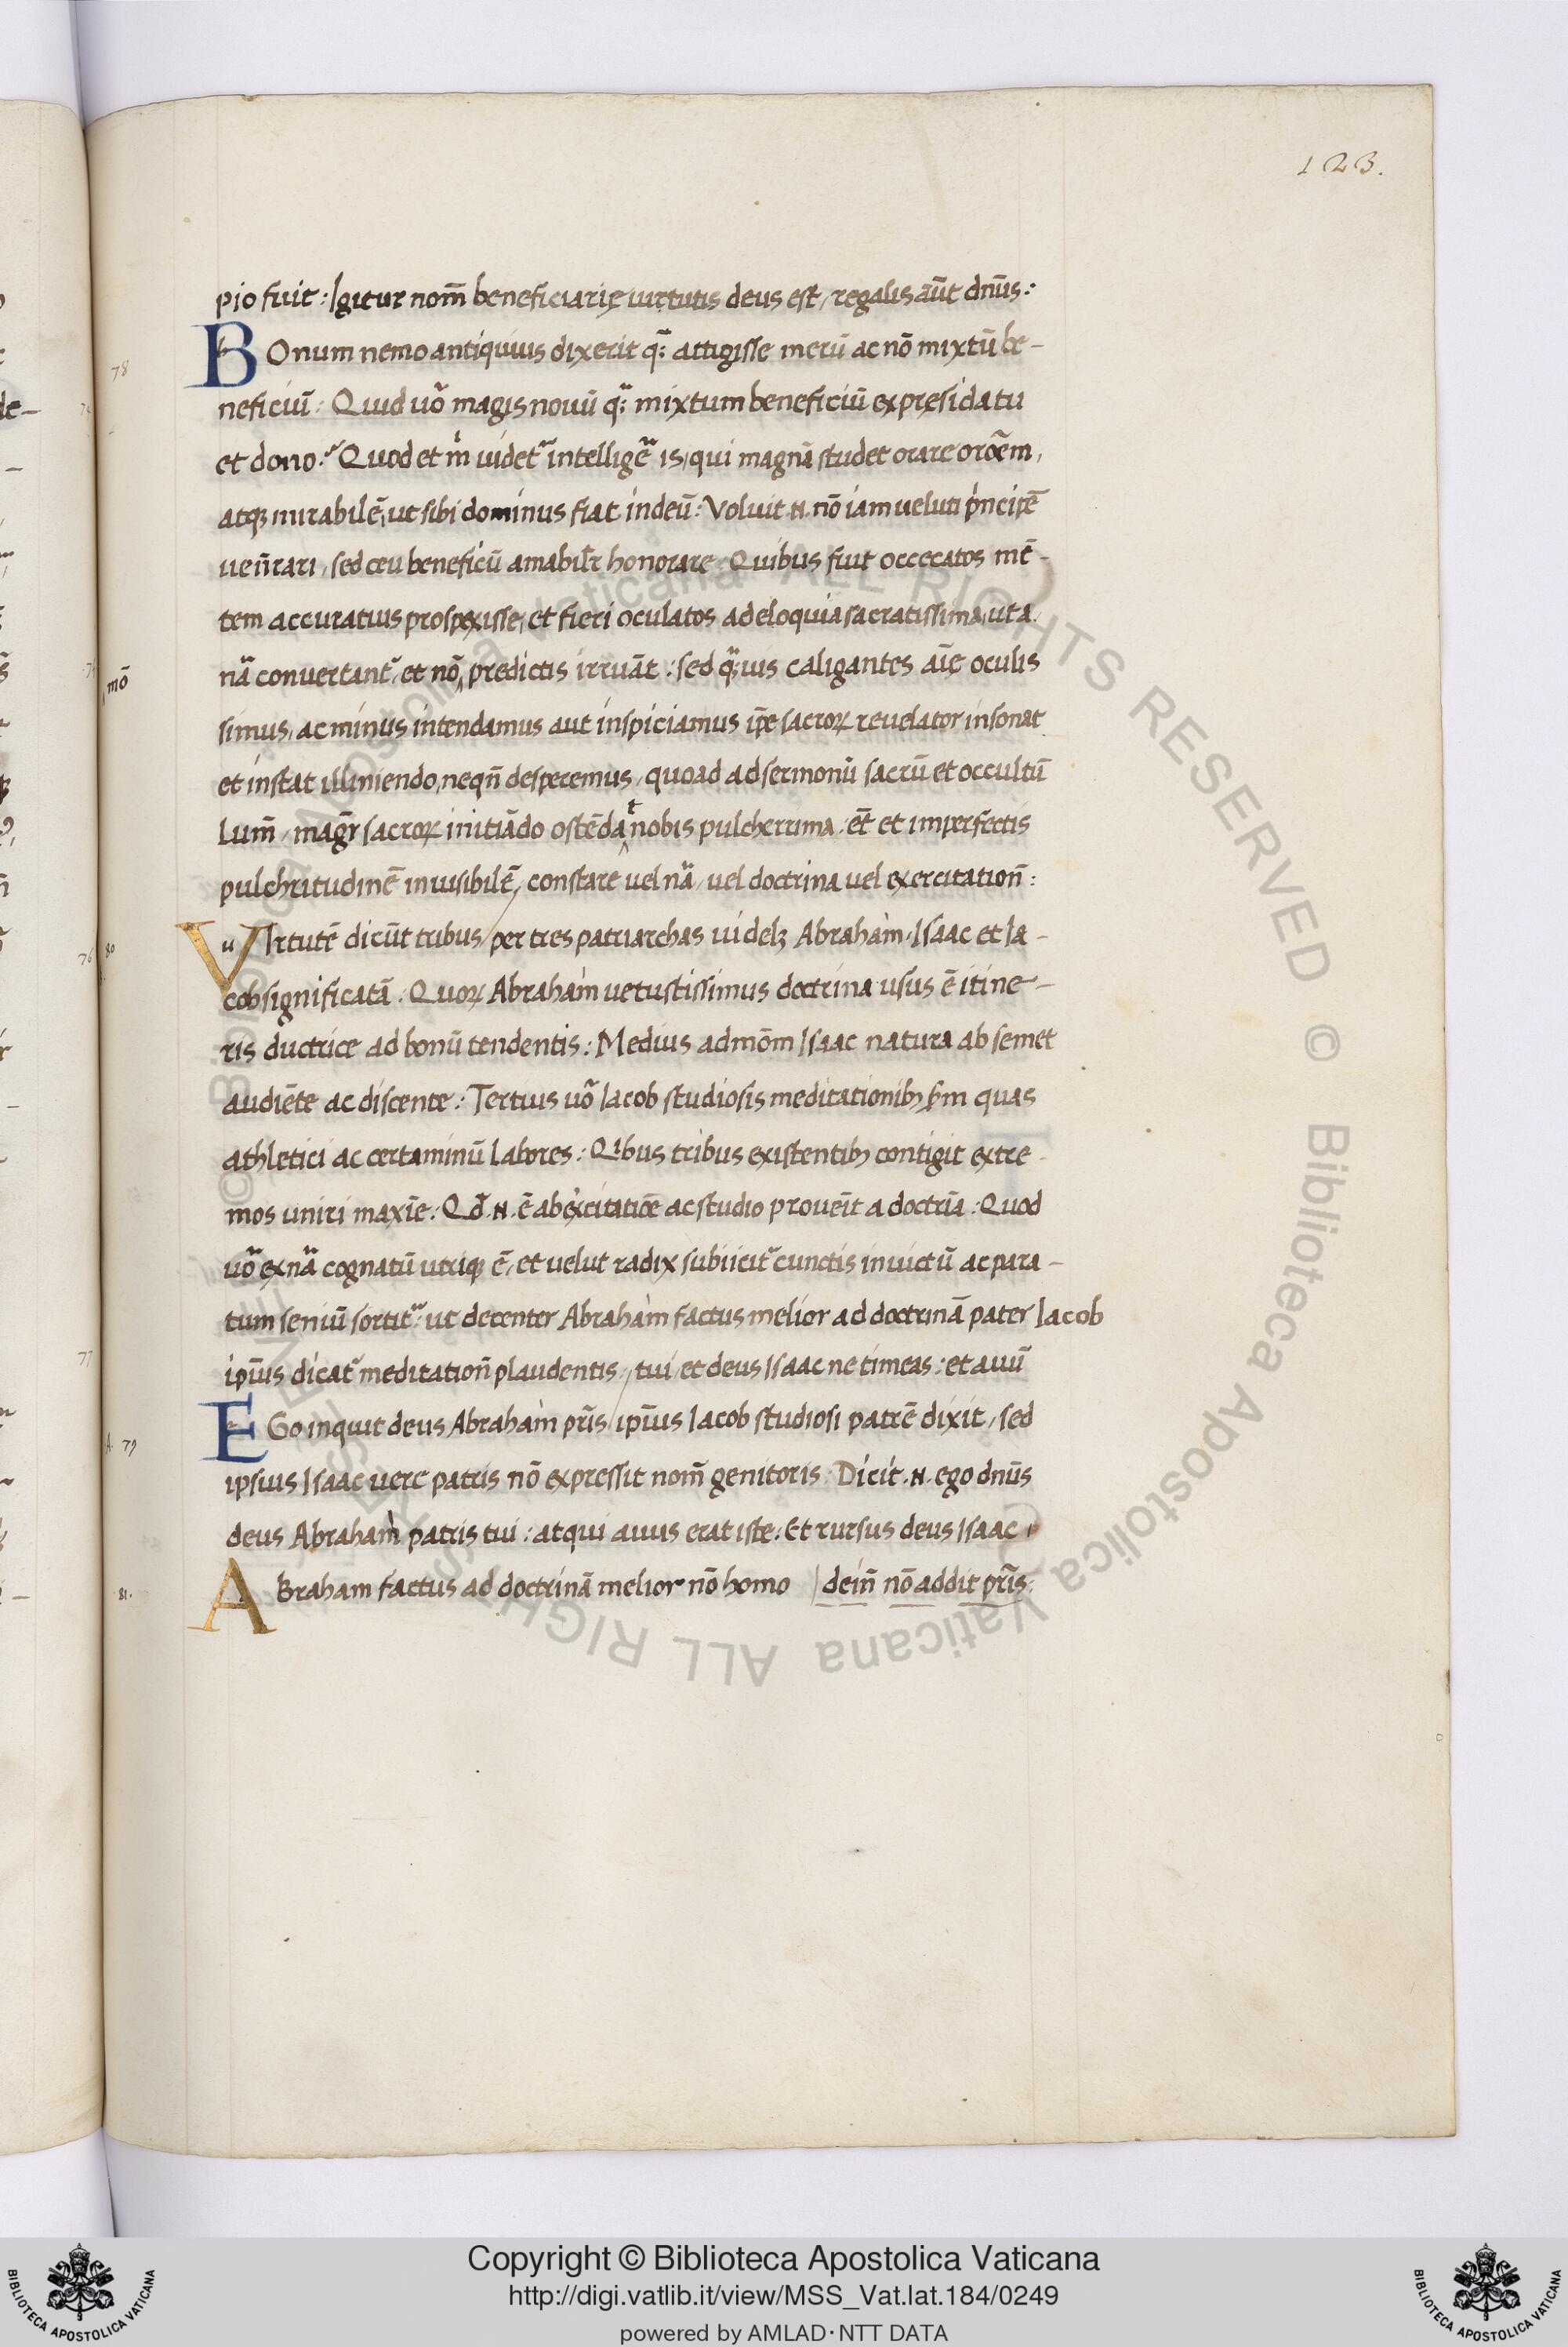 123.
pio fuit : Igitur nom̄ beneficiarię uirtutis deus est / regalis aūt dn̄us :
BOnum nemo antiquius dixerit q̄ : attigisse merū ac nō mixtū be-
78
neficiū : Quid uō magis nouū q̄ : mixtum beneficiū ex presidatu
et dono : Quod et m̄ uidet̄ intelligē is, qui magnā studet orare orōem,
atq; mirabilē, ut sibi dominus fiat in deū : Voluit .N. nō iam ueluti pͥncipē
uen̄rari, sed ceu beneficū amabilr̄ honorare. Quibus fuit occecatos mē-
tem accuratius prospexisse, et fieri oculatos ad eloquia sacratissima, ut a.
nā conuertant̄, et nō predictis irruāt : sed q̄:uis caligantes aīę oculis
mō
simus, ac minus intendamus aut inspiciamus ip̄e sacroꝝ reuelator insonat
et instat illiniendo, neqn̄ desperemus, quoad ad sermonū sacrū et occultū
lum̄, magr̄ sacroꝝ initiādo ostēdat nobis pulcherrima. et̄ et imperfectis
pulchritudinē inuisibilē, constare uel nā, uel doctrina uel exercitation̄ :
VIrtutē dicūt tribus / per tres patriarchas uidelꝫ Abraham . Isaac et Ia-
76 80
cob significatā. Quoꝝ Abraham uetustissimus doctrina usus ē itine-
ris ductrice ad bonū tendentis : Medius admōm Isaac natura ab semet
audiēte ac discente : Tertius uō Iacob studiosis meditationibꝫ sm̄ quas
athletici ac certaminū labores : Qͥbus tribus existentibꝫ contigit extre-
mos uniri maxīe : Qd̄ .N. ē ab exͬcitatiōe ac studio proueīt a doctrīa : Quod
uō ex nā cognatū utriq; ē, et uelut radix subiicit̄ cunctis inuictū ac para-
tum seniū sortit̄ : ut decenter Abraham factus melior ad doctrinā pater Iacob
ip̄ius dicat̄ meditation̄ plaudentis : / tui, et deus Isaac ne timeas : et auū
77
EGo inquit deus Abraham pr̄is / ip̄ius Iacob studiosi patrē dixit, sed
A. 79
ipsius Isaac uere patris nō expressit nom̄ genitoris : Dicit .N. ego dn̄us
deus Abraham patris tui : atqui auus erat iste : Et rursus deus Isaac .
ABraham factus ad doctrinā melior nō homo / deīn nō addit pr̄is :
81.
Copyright © Biblioteca Apostolica Vaticana
http://digi.vatlib.it/view/MSS_Vat.lat.184/0249
powered by AMLAD·NTT DATA